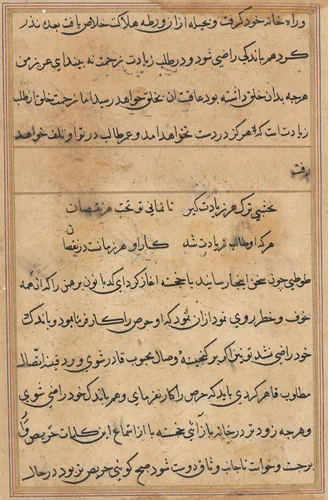 وراه خانه خود گرفت و بحیله ازان ورطه هلاکت خلاص یافت بعده نذر
کرد هر باندکی راضی شود و در طلب زیادت زحمت نه بیند ای عزیز من
هرچه بدان خلق داشته بود عاقبت ان بخلق خواهد رسید اما زحمت خلق از طلب
زیادت است که هرگز در دست نخواهد امد و عمر طالب در تو او تلف خواهد
رفت
نخشبی ترک هر زیادت گیر تا نمانی تو تحت هر نقصان
هر که او طالب زیادت شد کار او هر زمانست در نقصان
طوطی چون سخن اینجا رسانید با خجسته اغاز کرد ای کدبانو برهمن را که ان همه
خوف و خطر روی نمود از ان بود که او حرص را کار فرما بود و باندک
خود راضی نشد تو نیز اگر بر گنجینه وصال محبوب قادر شوی و بر دفینه اتصال
مطلوب قاهر گردی باید که حرص را کار نفرمای و هم باندک خود راضی شوی
و هرچه زودتر در خانه باز آئی خجسته با از استماع این کلمات حریص‌تر
برجست و خواست تا جانب وثاق دوست شود صبح گوئی حریص‌تر بود در حال